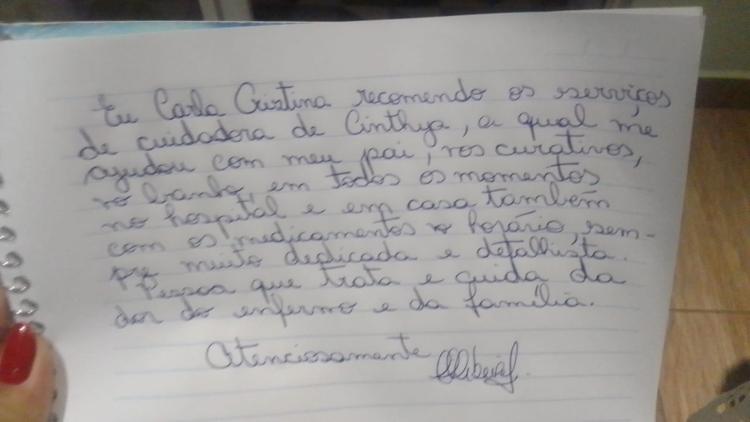 Eu Carla Cristina recomendo os serviços
de cuidadora de Cinthya, a qual me
ajudou com meu pai, nos curativos,
no banho, em todos os momentos
no hospital e em casa também
com os medicamentos no horário, sem-
pre muito dedicada e detalhista.
Pessoa que trata e cuida da
dor do enfermo e da família.
Atenciosamente